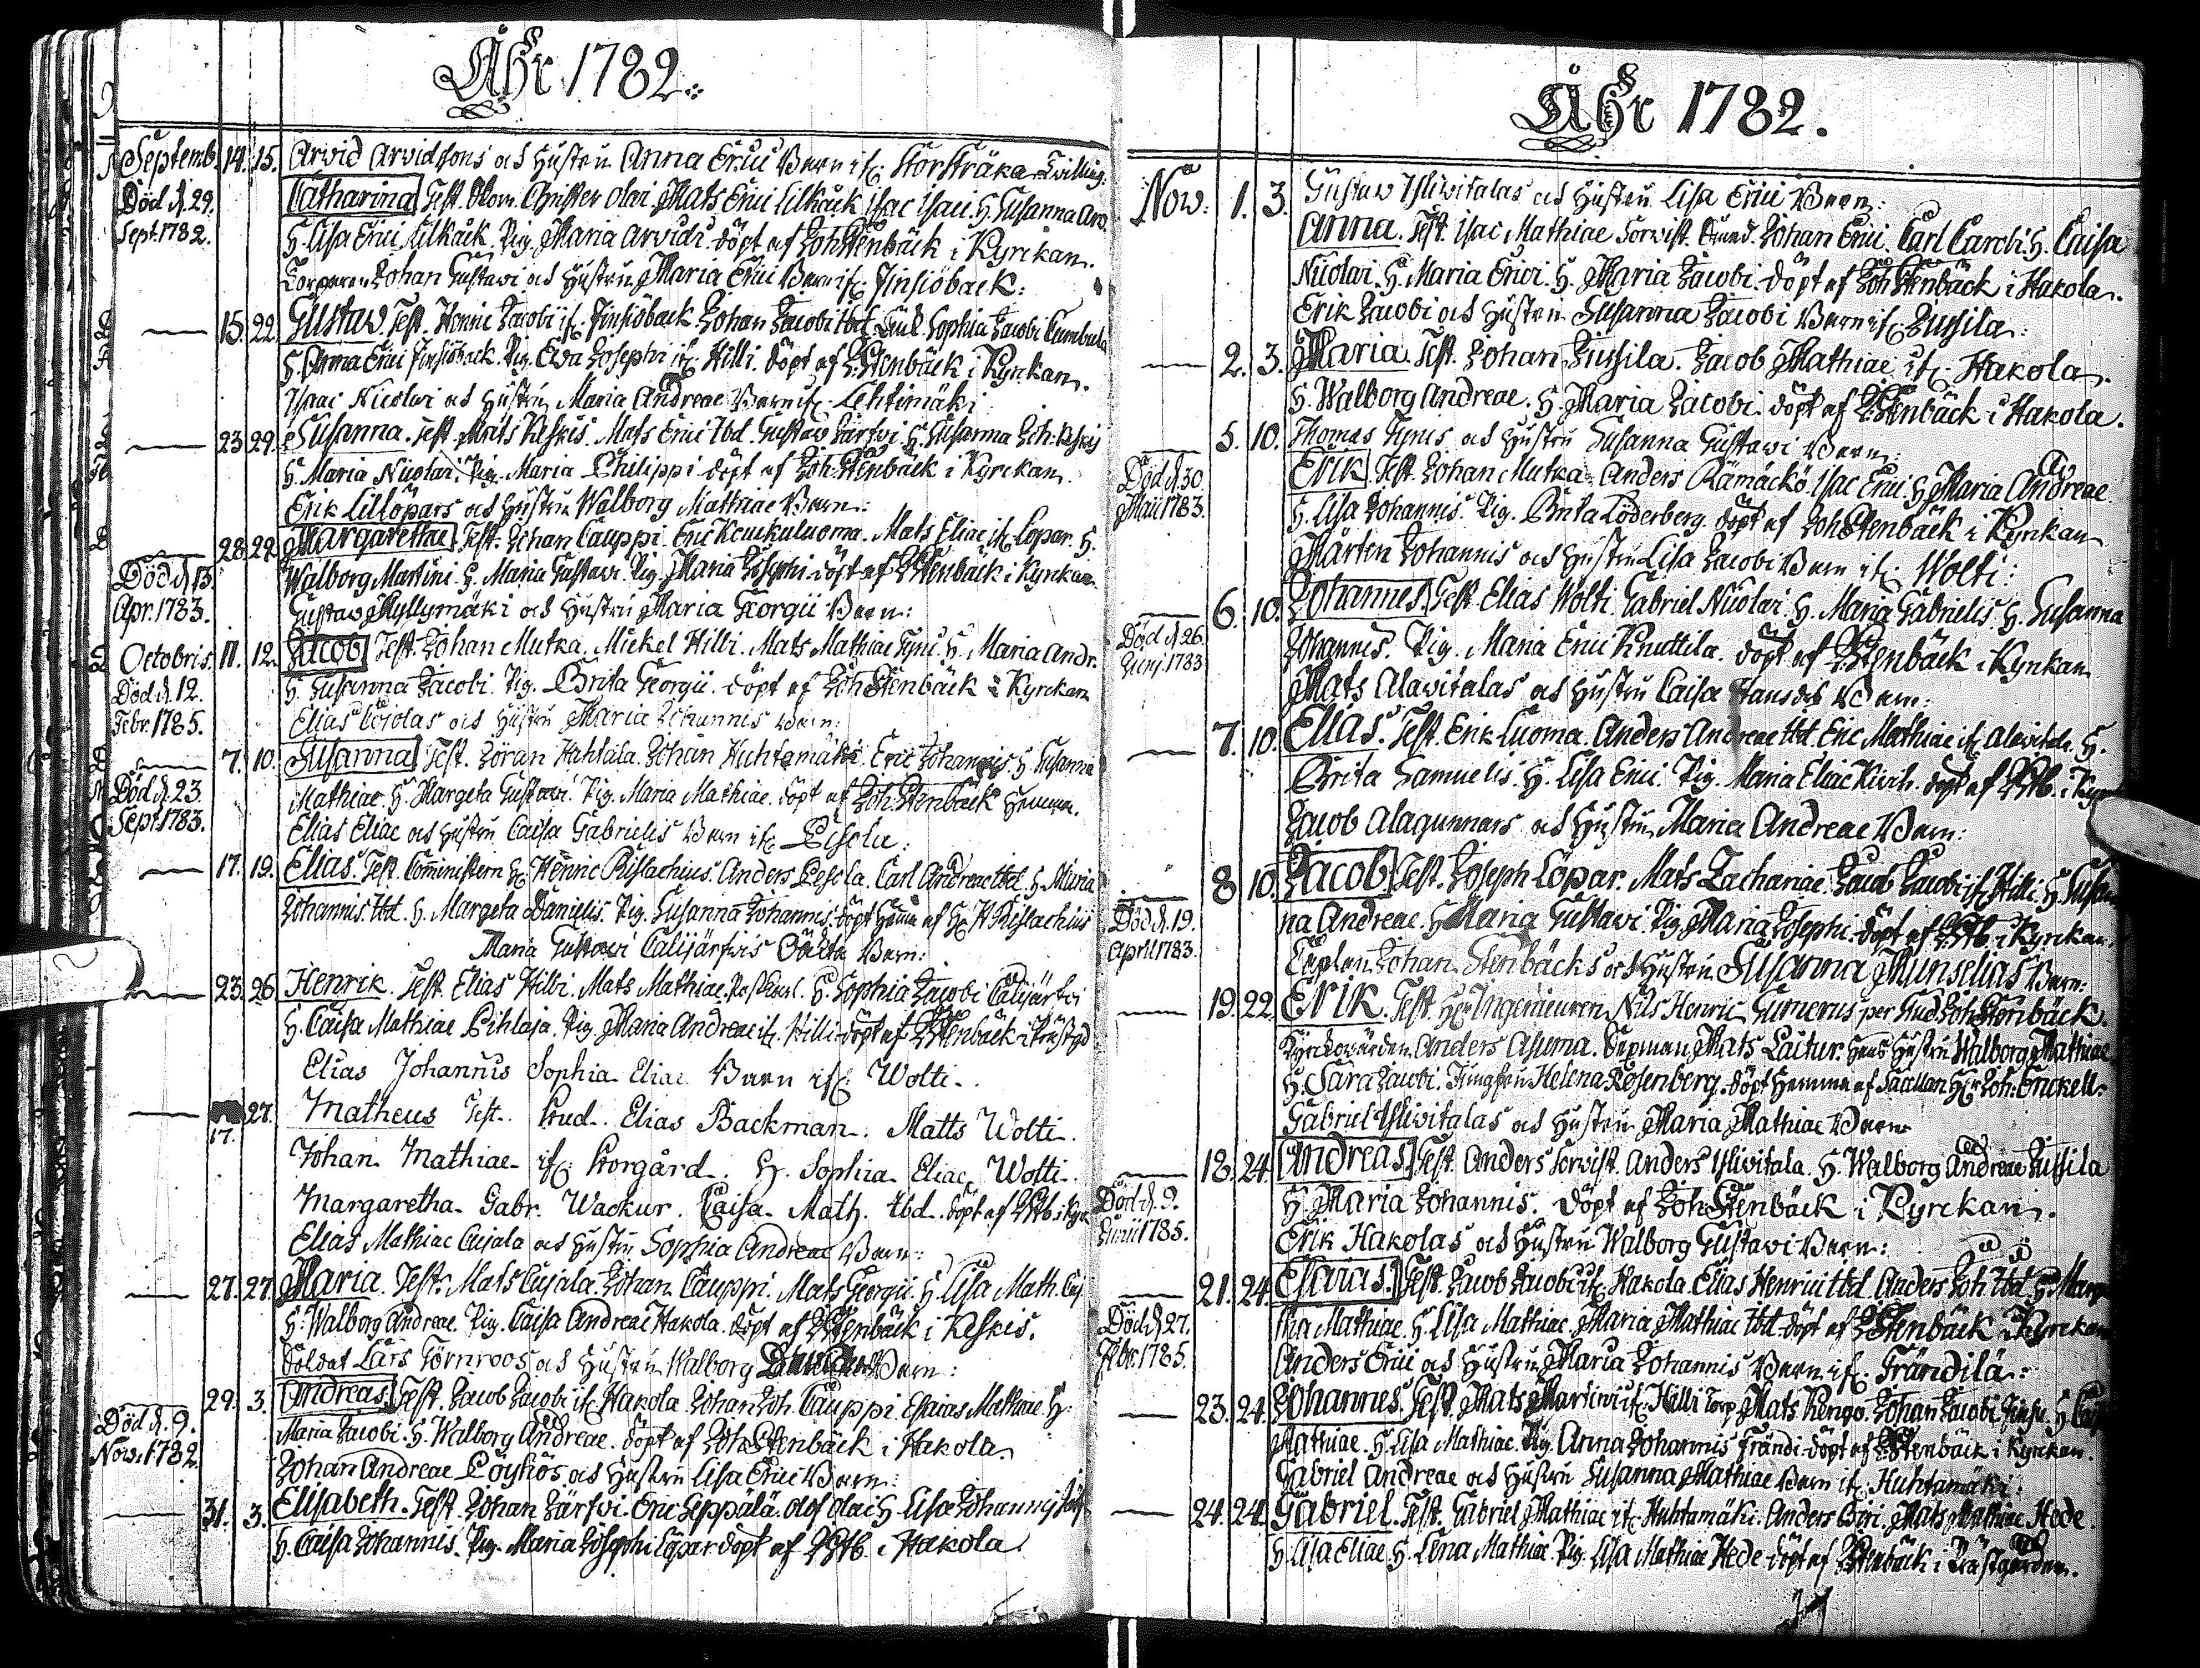 Åhr 1782.
Septemb. 14. 15. Arvid Arvidsons och Hustru Anna Erici Barn if: Storstråka Tvilling.
Död d. 29. Sept. 1782.
Catharina Test. Christer Olai. Mats Erici Lilkåck Isac Isaci. H. Susanna Arv.
H. Lisa Erici Lilkåck. Pig. Maria Arvidi. döpt af Joh. Stenbäck i Kyrckan.
Torparen Johan Gustawi och Hustru Maria Erici Barn if: Finsiöback:
15. 22. Gustaw Test. Henric Jacobi if. Finsiöback. Johan Jacobi ibd. Sophia Jacobi
H. Anna Erici Finsiöback. Pig. Ewa Josephi if. Hilli. döpt af J. Stenbäck i Kyrckan.
Isaac Nicolai och Hustru Maria Andreae Barn if: Lehtimäki
23 29. Susanna. Test. Mats Keskis. Mats Erici ibd. Gustaw Järfvi H. Susanna Joh. Keskis
H. Maria Nicolai. Pig. Maria Philippi döpt af Joh. Stenbäck i Kyrckan.
Erik Lillöpars och Hustru Walborg Mathiae Barn:
28 29. Margaretha Test. Johan Cauppi. Eric Keukuluoma. Mats Eliae if. Löpar. H.
Död d. 13. Apr. 1783.
Walborg Martini. H. Maria Gustawi. Pig. Maria Josephi döpt af J. Stenbäck i Kyrckan.
Gustaw Myllymäki och Hustru Maria Georgii Barn:
Octobris. 11. 12. Jacob Test. Johan Mutka. Mickel Hilli. Mats Mathiae Tyni. H. Maria Andr.
Död d. 12. Febr. 1785.
H. Susanna Jacobi. Pig. Brita Georgii. döpt af Joh Stenbäck i Kyrckan
Elias och Hustru Maria Johannis Barn:
7. 10. Susanna Test. Göran Hahlala. Johan Huhtamäki. Eric Johannis H. Susanna
Död d. 23. Sept. 1783.
Mathiae. H. Margeta Gustawi. Pig. Maria Mathiae. döpt af Joh. Stenbäck Hemma.
Elias Eliae och Hustru Caisa Gabrielis Barn if: Pesola:
17. 19. Elias. Test. Comministern Hr. Henric Anders Pesola. Carl Andreae ibd. H. Maria
Johannis. ibd. H. Margeta Danielis. Pig. Susanna Johannis. döpt Hemma af Hr. H.
Maria Gustawi Calijärfvis Oäckta Barn:
23. 26. Henrik. Test. Elias Hilli. Mats Mathiae H. Sophia Jacobi Calijärfvi
H. Caisa Mathiae Pihlaja. Pig. Maria Andreae if. Hilli döpt af J. Stenbäck i Prästgd
Elias Johannis Sophia Eliae Barn if: Wolti.
17. 27. Matheus Test. Elias Backman. Matts Wolti.
Johan Mathiae if. Porgård. H. Sophia Eliae Wolti.
Margaretha Gabr. Wackur. Caisa Math. ibd. döpt af J. Stb. i Kyrk
Elias Mathiae Cujala och Hustru Sophia Andreae Barn:
27. 27. Maria. Test. Mats Cujala. Johan Cauppi. Mats Georgii. H. Lisa Math. Cuj.
H. Walborg Andreae. Pig. Caisa Andreae Hakola. döpt af J. Stenbäck i Keskis.
Soldat Lars Törnroos och Hustru Walborg Barn:
29. 3. Andreas Test. Jacob Jacobi if. Hakola. Johan Joh. Cauppi. Esaias Mathiae H.
Död d. 9. Now. 1782.
Maria Jacobi. H. Walborg Andreae. döpt af Joh. Stenbäck i Hakola.
Johan Andreae Löyhös och Hustru Lisa Erici Barn:
31. 3. Elisabeth. Test. Johan Järfvi. Eric Seppälä. Olof Olai H. Lisa Johannis
H. Caisa Johannis. Pig. Maria Josephi Löpar döpt af J. Stb. i Hakola
Åhr 1782.
Now: 1. 3. Gustaw Yliwitalas och Hustru Lisa Erici Barn:
Anna. Test. Isac Mathiae Sorvist. Johan Erici. Carl Caroli. H. Caisa
Nicolai. H. Maria Erici. H. Maria Jacobi. döpt af Joh. Stenbäck i Hakola.
Erik Jacobi och Hustru Susanna Jacobi Barn if: Jussila:
2. 3. Maria. Test. Johan Jussila. Jacob Mathiae if. Hakola.
H. Walborg Andreae. H. Maria Jacobi. döpt af J. Stenbäck i Hakola.
5. 10. Thomas Tynis och Hustru Susanna Gustawi Barn:
Död d. 30. Maji 1783.
Erik Test. Johan Mutka. Anders Rämäckö. Isac Erici. H. Maria Andreae
H. Lisa Johannis. Pig. Brita Löderberg. döpt af Joh Stenbäck i Kyrckan
Mårten Johannis och Hustru Lisa Jacobi Barn if: Wolti:
6. 10. Johannes. Test. Elias Wolti. Gabriel Nicolai. H. Maria Gabrielis. H. Susanna
Död d. 26. Junj. 1783
Johannis. Pig. Maria Erici Knuttila. döpt af J. Stenbäck i Kyrckan
Mats Alawitalas och Hustru Caisa Hansdr Barn:
7. 10. Elias. Test. Erik Luoma. Anders Andreae ibd. Eric Mathiae if. Alawitala. H.
Brita Samuelis. H. Lisa Erici. Pig. Maria Eliae döpt af J. Stb. i Kyrck
Jacob Alagunnars och Hustru Maria Andreae Barn:
8 10. Jacob Test. Joseph Löpar. Mats Zachariae. Jacob Jacobi if. Hilli. H. Susan
Död d. 19. April 1783.
na Andreae. H. Maria Gustawi. Pig. Maria Josephi. döpt af J. Stb. i Kyrckan.
Caplan Johan Stenbäcks och Hustru Susanna Munselias Barn:
19. 22. Erik. Test. Hr. Ingenieuren Nils Henric Gumerus per Stud. Joh. Stenbäck.
Kyrckowärden Anders Asuma. Sexman Mats Laitur. Hans Hustru Walborg Mathiae
H. Sara Jacobi. Jungfru Helena Rosenberg. döpt Hemma af Sacellan Hr. Joh. Enckell.
Gabriel Yliwitalas och Hustru Maria Mathiae Barn
18. 24. Andreas Test. Anders Sorvist. Anders Yliwitala. H. Walborg Andreae Jussila
Död d. 9. Junii 1785.
H. Maria Johannis. döpt af Joh. Stenbäck i Kyrckan.
Erik Hakolas och Hustru Walborg Gustawi Barn:
21. 24. Esaias. Test. Jacob Jacobi if. Hakola Elias Henrici ibd. Anders Joh. ibd. H. Marga
Död d. 27. 1785.
tha Mathiae. H. Lisa Mathiae. Maria Mathiae ibd. döpt af J. Stenbäck i Kyrckan
Anders Erici och Hustru Maria Johannis Barn if: Frändilä:
23. 24. Johannes. Test. Mats Martini if. Hilli Torp. Mats Rengo. Johan Jacobi H.
Mathiae. H. Lisa Mathiae. Pig. Anna Johannis Frändi. döpt af J. Stenbäck i Kyrckan.
Gabriel Andreae och Hustru Susanna Mathiae Barn if: Huhtamäki:
24. 24. Gabriel. Test. Gabriel Mathiae if. Huhtamäki. Anders Mats Mathiae Hede.
H. Lisa Eliae. H. Lena Mathiae. Pig. Lisa Mathiae Hede döpt af J. Stenbäck i Prästgården.